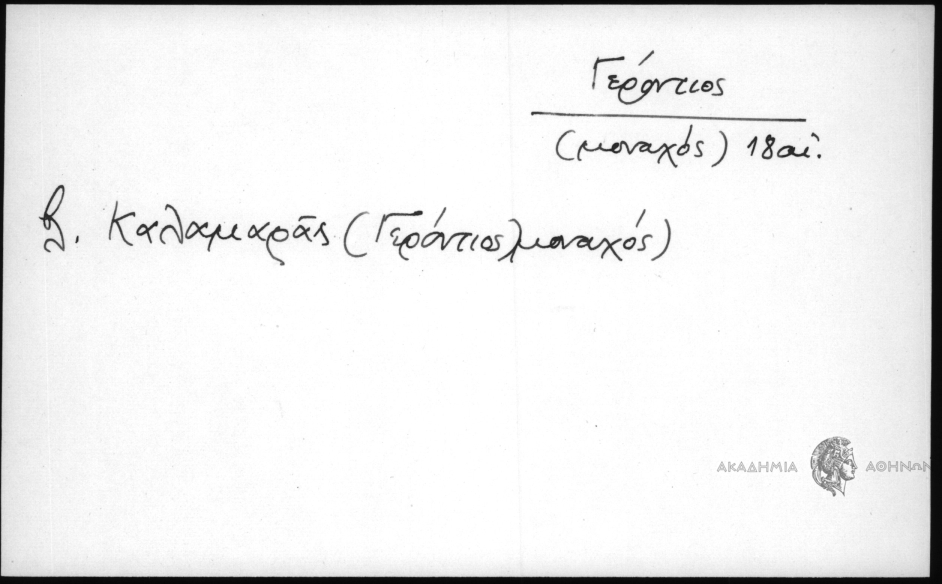 Γερόντιος
(μοναχός) 18 αἰ.
Βλ. Καλαμαρᾶς (Γερόντιος, μοναχός)
ΑΚΑΔΗΜΙΑ ΑΘΗΝΩΝ